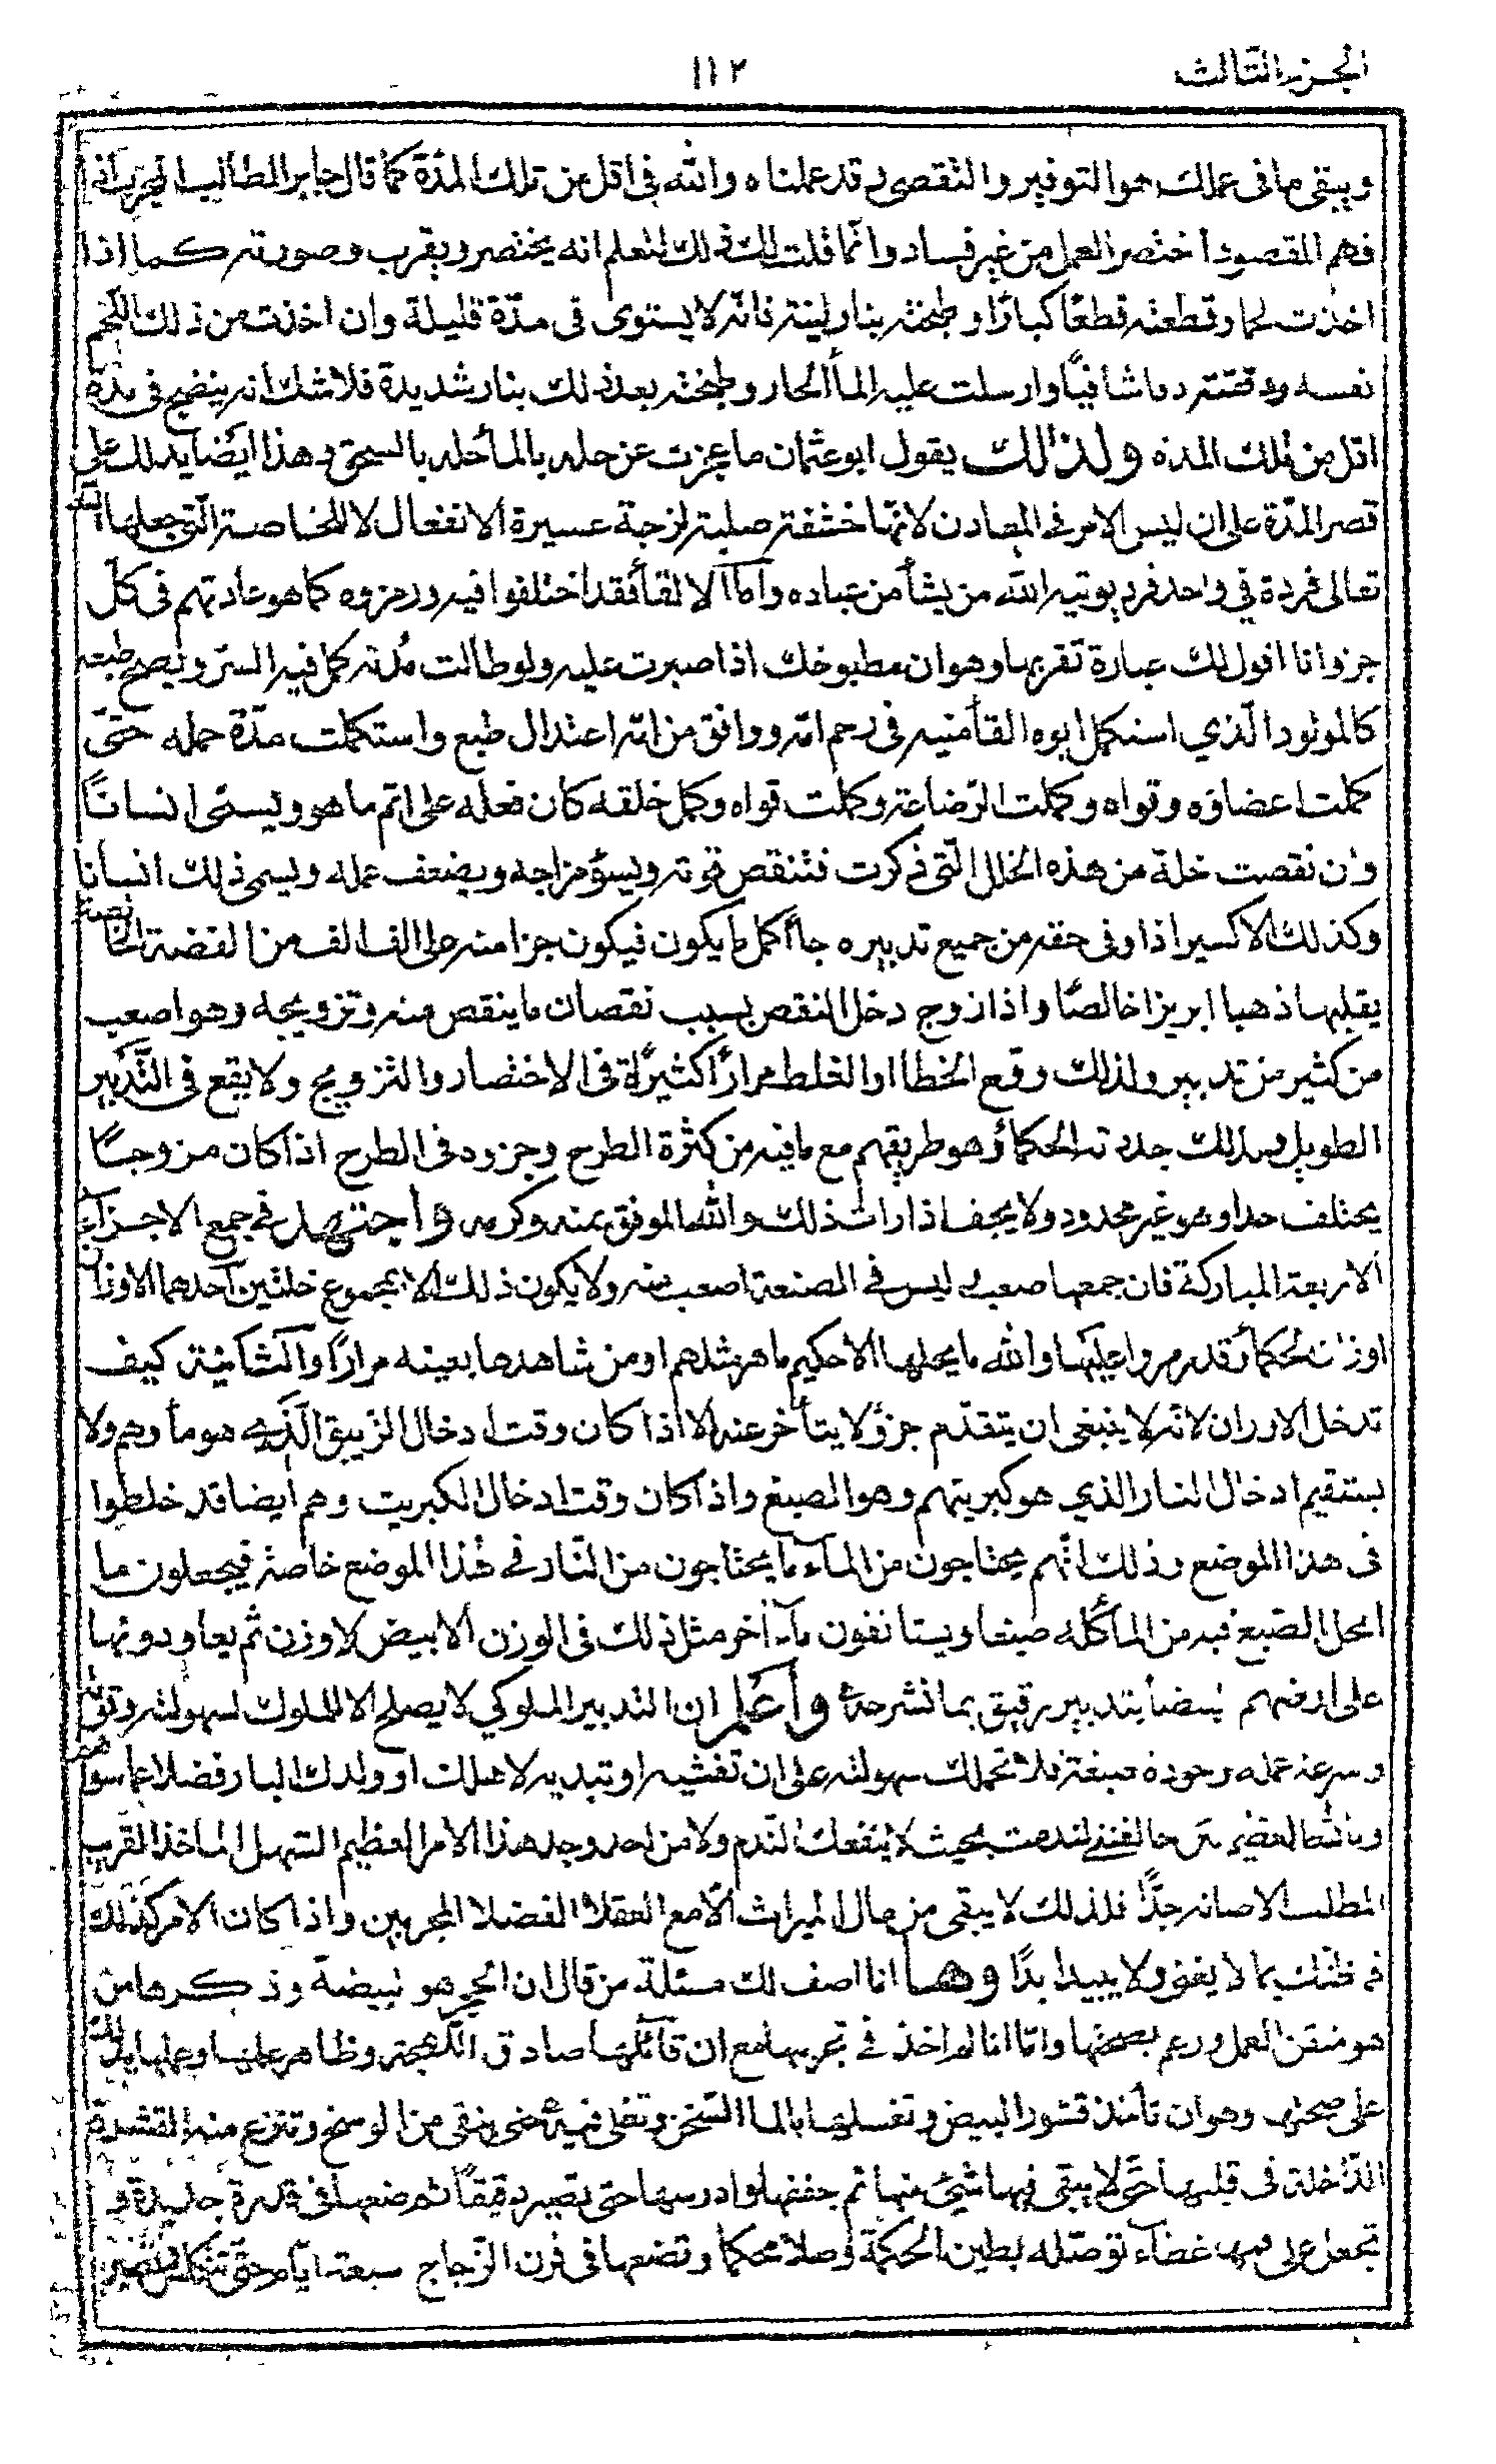 الجزء الثالث
١١٢
ويبقى ما فى عملك هو التوفير والتقصير قد عملناه والله فى اقل من تلك المدّة كما قال جابر المطالب
فهم المقصود اختصر العمل من غير فساد وانّما قلت لك ذلك لتعلم انه يختصر ويقرب وصورته كما اذا
اخذت لحما وقطعته قطعًا كبارًا وطبخته بنار لينة فانّه لا يستوى فى مدّة قليلة وان اخذت من ذلك اللّحم
نفسه ودققته دقا شافيًا وارسلت عليه المأ الحار وطبخته بعد ذلك بنار شديدة فلا شك انه ينضج فى مدّة
اقل من تلك المده ولذالك يقول ابو عثمان ما عجزت عن حله بالمأ حله بالسحق وهذا ايضًا يدلك على
قصر المدّة على ان ليس الامر فى المعادن لانّها خشفة صلبة لزجة عسيرة الانفعال لا للخاصة الّتى جعلها الله
تعالى فردة في واحد فرد يوتيه الله من يشأ من عباده وامّا الالقأ فقد اختلفوا فيه ورمزوه كما هو عادتهم فى كلّ
جزوانا اقول لك عبارة تقربها وهو ان مطبوخك اذا صبرت عليه ولو طالت مدته كمل فيه السرّ ويصح طبته
كالمولود الّذي استكمل ابوه القأ منيه فى رحم امّه ووافق من امّه اعتدال طبع واستكملت مدّة حمله حتّى
كملت اعضاؤه وقواه وكملت الرّضاعة وكملت قواه وكمل خلقه كان فعله على اتم ما هو ويسمّى انسانًا
وان نقصت خلة من هذه الخلل الّتى ذكرت فتنقص قوته ويسؤ مزاجه ويضعف عمله ويسمى ذلك انسانا
وكذلك الاكسير اذا وفى حقه من جميع تدبيره جأ اكمل ما يكون فيكون جزا منه على الف الف من الفضة الخالصة
يقلبها ذهبا ابريزا خالصًا واذا زوج دخل النقص بسبب نقصان ما ينقص منه وتزويجه وهو اصعب
من كثير من تدبير ولذلك وقع الخطا او الغلط مرارًا كثيرًة فى الاختصار والتزويج ولا يقع فى التّدبير
الطويل وبذلك جدته الحكمأ وهو طريقهم مع ما فيه من كثرة الطرح وجزوه فى الطرح اذا كان مزوجًا
يختلف حدا وهو غير محدود ولا يجف اذا رات ذلك والله الموفق بمنه وكرمه واجتهد في جمع الاجزآء
الاربعة المباركة فان جمعها صعب ليس في الصنعة اصعب منه ولا يكون ذلك الا بمجموع خلتين احدهما الاوزان
اوزان الحكمأ قد رمزوا عليها والله ما يحلها الا حكيم ماهر مثلهم او من شاهدها بعينه مرارًا والثّانية كيف
تدخل الاوزان لانّه لا ينبغى ان يتقدّم جزؤ ولا يتأخر عنه الا اذا كان وقت ادخال الزيبق الّذى هو مأ وهم ولا
يستقيم ادخال النار الذي هو كبريتهم وهو الصبغ واذا كان وقت ادخال الكبريت وهم ايضا قد خلطوا
فى هذا الموضع وذلك انّهم يحتاجون من المآء ما يحتاجون من النّار في هذا الموضع خاصة فيجعلون ما
انحل الصّبغ فيه من المأ كله صبغا ويستانفون مآء آخر مثل ذلك فى الوزن الابيض لا وزن ثم يعاودونها
على ارضهم بيضأ بتدبير رقيق بما نشرحه واعلم ان التدبير الملوكي لا يصلح الا للملوك لسهولته
وسرعة عمله وجودة صبغة فلا تحملك سهولته على ان تفشيه او تبديه لاهلك او ولدك البار فضلا عما سواهم
وبالله العظيم متى خالفتنى لندمت بحيث لا ينفعك النّدم ولا من احد وجد هذا الامر العظيم السّهل الماخذ القريب
المطلب الا صانه جدًّا فلذلك لا يبقى من مال الميراث الّا مع العقلا الفضلا المجربين واذا كان الامر كذلك
فى ظنك بما لا يفنى ولا يبيد ابدًا وهـا انا اصف لك مسئلة من قال ان الحجر هو بيضة وذكرها من
هو متقن العمل وزعم بصحتها وامّا انا لم اخذ في تجربتها مع ان قآئلها صادق اللّهجة وظاهر علمها وعملها يدل
على صحتها وهو ان تأخذ قشور البيض وتغسلها بالمأ السّخن وتغلى فيه حتى ينقى من الوسخ وتنزع منه القشرة
الدّاخلة فى قلبها حتّى لا يبقى فيها شيئ منها ثم جففها وادرسها حتى تصير دقيقًا ثم ضعها فى قدرة جديدة و
تجعل على فمها غضآء توصله بطين الحكمة وصلا محكما وتضعها فى فرن الزّجاج سبعة ايّام حتّى تتكلس وتصير